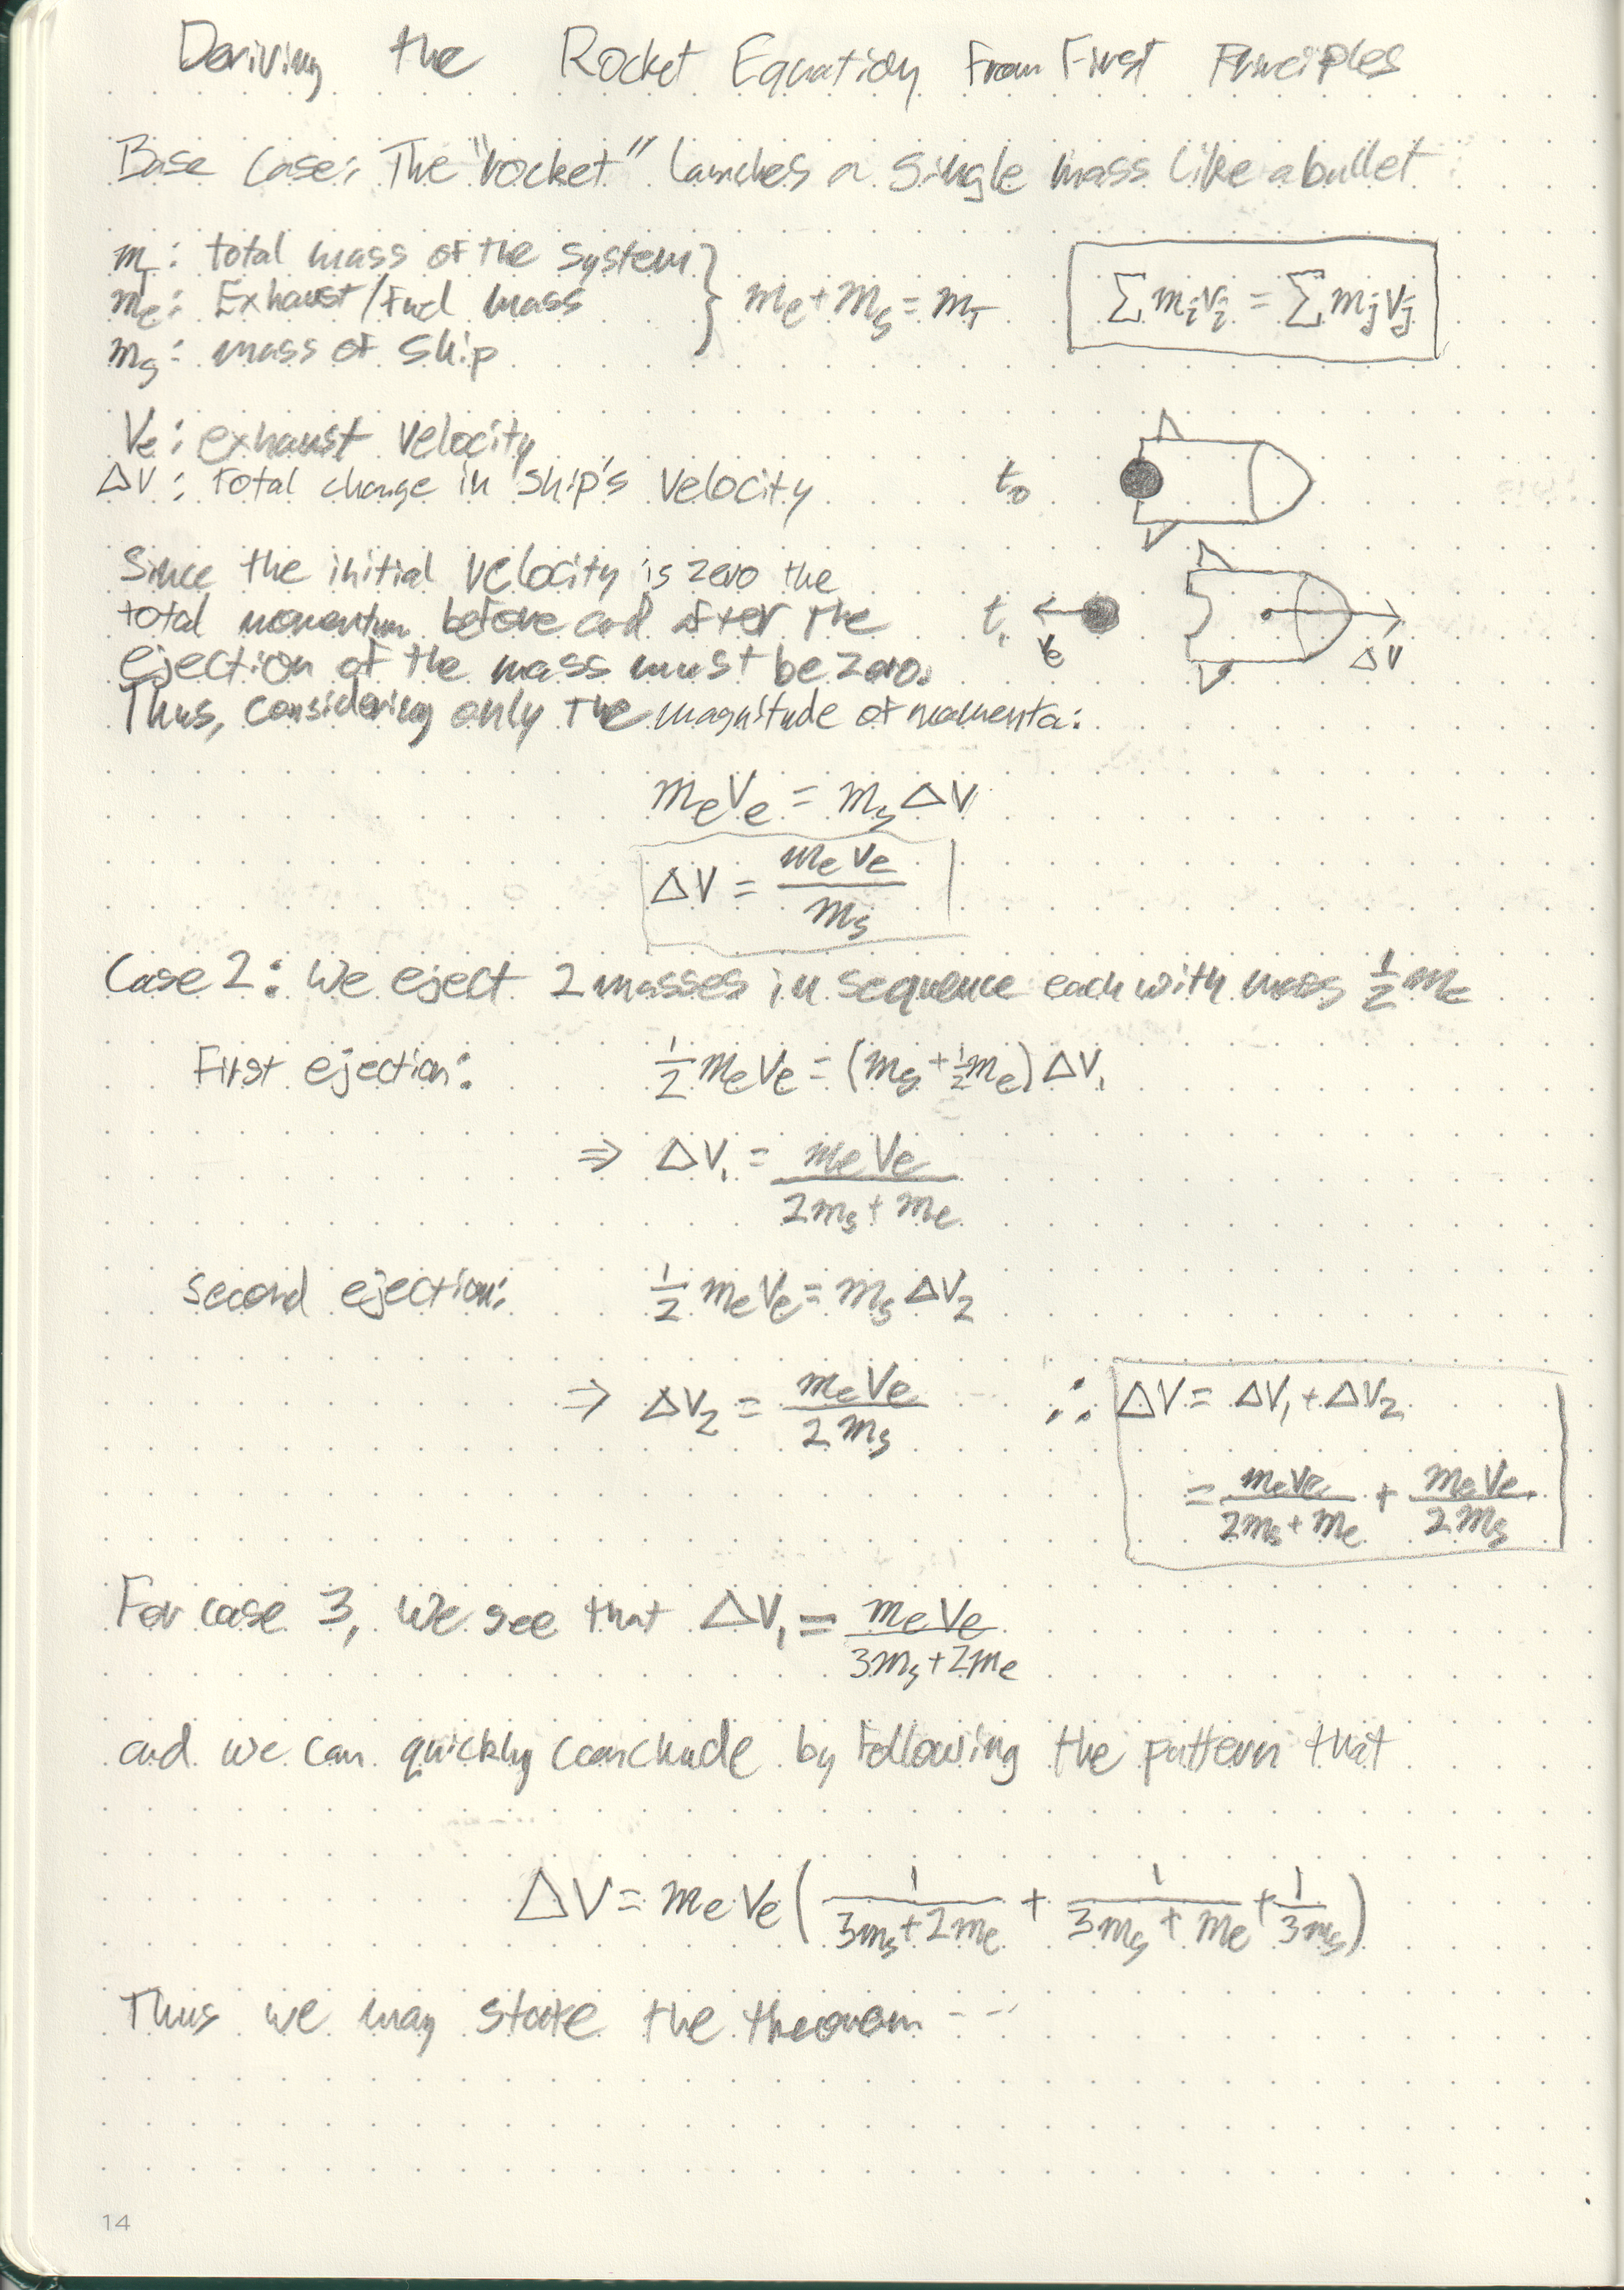 Deriving the Rocket Equation From First Principles
Base Case: The "rocket" launches a single mass like a bullet
m_T: total mass of the system
m_e: Exhaust/Fuel mass
m_s: mass of ship
} m_e + m_s = m_T
∑ m_i v_i = ∑ m_j v_j
V_e: exhaust velocity
ΔV: total change in ship's velocity
t_0
Since the initial velocity is zero the
total momentum before and after the
ejection of the mass must be zero.
Thus, considering only the magnitude of momenta:
t_1
V_e
ΔV
m_e V_e = m_s ΔV
ΔV = m_e V_e / m_s
Case 2: We eject 2 masses in sequence each with mass 1/2 m_e
First ejection: 1/2 m_e V_e = (m_s + 1/2 m_e) ΔV_1
⇒ ΔV_1 = m_e V_e / (2m_s + m_e)
second ejection: 1/2 m_e V_e = m_s ΔV_2
⇒ ΔV_2 = m_e V_e / 2m_s
∴ ΔV = ΔV_1 + ΔV_2
= m_e V_e / (2m_s + m_e) + m_e V_e / 2m_s
For case 3, we see that ΔV_1 = m_e V_e / (3m_s + 2m_e)
and we can quickly conclude by following the pattern that
ΔV = m_e V_e (1/(3m_s + 2m_e) + 1/(3m_s + m_e) + 1/3m_s)
Thus we may state the theorem - - -
14